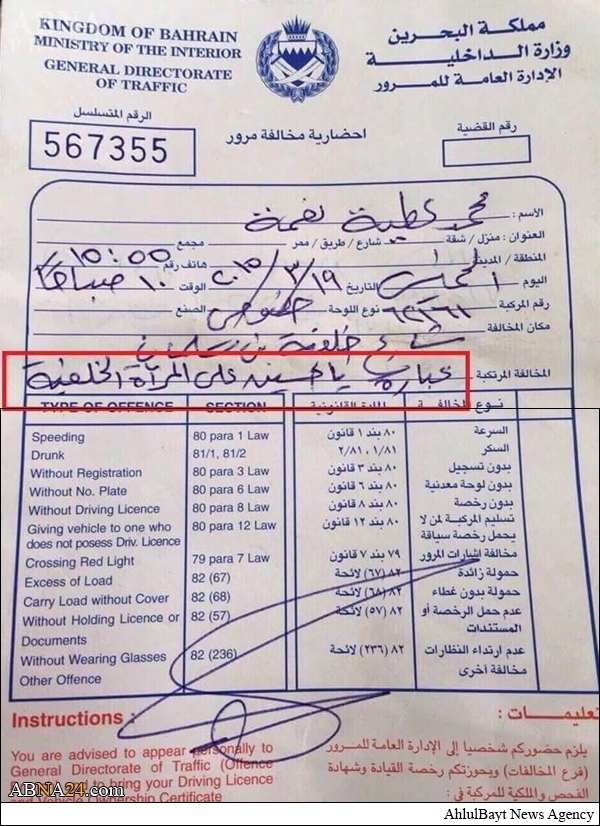 KINGDOM OF BAHRAIN
MINISTRY OF THE INTERIOR
GENERAL DIRECTORATE
OF TRAFFIC
مملكة البحرين
وزارة الداخلية
الإدارة العامة للمرور
الرقم المتسلسل
567355
احضارية مخالفة مرور
رقم القضية
الاسم : محمد عطية نعمة
العنوان : منزل / شقة شارع / طريق / ممر مجمع
المنطقة / المدينة هاتف رقم
اليوم الخميس التاريخ ٢٠١٥/٣/١٩ الوقت ١٠ صباحا
رقم المركبة نوع اللوحة خصوص الصنع
مكان المخالفة شارع خليفة بن سلمان
المخالفة المرتكبة : عبارة يا حسين على المرآة الخلفية
TYPE OF OFFENCE SECTION المادة القانونية نوع المخالفة
Speeding 80 para 1 Law ٨٠ بند ١ قانون السرعة
Drunk 81/1, 81/2 ٢/٨١ ,١/٨١ السكر
Without Registration 80 para 3 Law ٨٠ بند ٣ قانون بدون تسجيل
Without No. Plate 80 para 6 Law ٨٠ بند ٦ قانون بدون لوحة معدنية
Without Driving Licence 80 para 8 Law ٨٠ بند ٨ قانون بدون رخصة
Giving vehicle to one who 80 para 12 Law ٨٠ بند ١٢ قانون تسليم المركبة لمن لا
does not posess Driv. Licence يحمل رخصة سياقة
Crossing Red Light 79 para 7 Law ٧٩ بند ٧ قانون مخالفة إشارات المرور
Excess of Load 82 (67) ٨٢ (٦٧) لائحة حمولة زائدة
Carry Load without Cover 82 (68) ٨٢ (٦٨) لائحة حمولة بدون غطاء
Without Holding Licence or 82 (57) ٨٢ (٥٧) لائحة عدم حمل الرخصة أو
Documents المستندات
Without Wearing Glasses 82 (236) ٨٢ (٢٣٦) لائحة عدم ارتداء النظارات
Other Offence مخالفة أخرى
Instructions :
تعليمات :
You are advised to appear personally to
General Directorate of Traffic (Offence
to bring your Driving Licence
and Vehicle Ownership Certificate
يلزم حضوركم شخصيا إلى الإدارة العامة للمرور
(فرع المخالفات) وبحوزتكم رخصة القيادة وشهادة
الفحص والملكية للمركبة في :
ABNA24.com
AhlulBayt News Agency